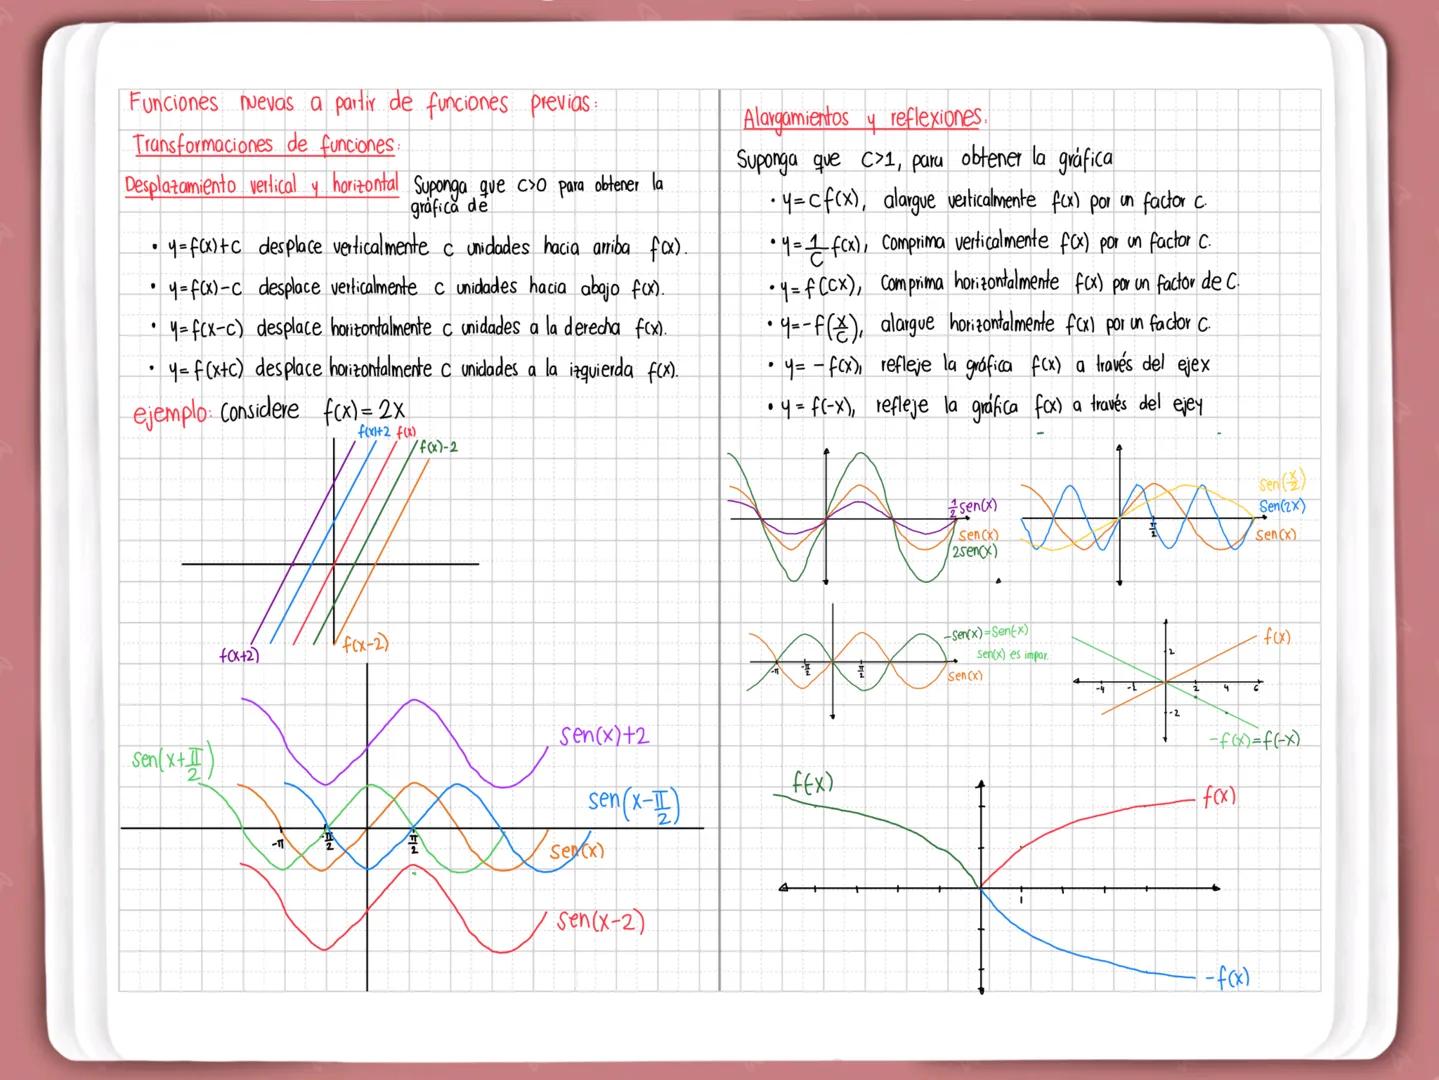 Funciones nuevas a partir de funciones previas:
Transformaciones de funciones:
Desplazamiento vertical y horizontal Suponga que C>0 para obtener la
gráfica de
• y=f(x)+c desplace verticalmente c unidades hacia arriba f(x).
• y=f(x)-c desplace verticalmente c unidades hacia abajo f(x).
• y=f(x-c) desplace horizontalmente c unidades a la derecha f(x).
• y=f(x+c) desplace horizontalmente c unidades a la izquierda f(x).
ejemplo: Considere f(x)=2x
f(x)+2 f(x)
f(x)-2
f(x+2)
f(x-2)
sen(x)+2
sen(x+π/2)
sen(x-π/2)
-π -π/2 π/2
sen(x)
sen(x-2)
Alargamientos y reflexiones.
Suponga que C>1, para obtener la gráfica
• y=cf(x), alargue verticalmente f(x) por un factor c.
• y=1/C f(x), Comprima verticalmente f(x) por un factor C.
• y=f(cx), Comprima horizontalmente f(x) por un factor de C.
• y=-f(x/c), alargue horizontalmente f(x) por un factor c.
• y=-f(x), refleje la gráfica f(x) a través del ejex
• y=f(-x), refleje la gráfica f(x) a través del ejey
1/2 sen(x)
sen(x)
2sen(x)
sen(x/2)
Sen(2x)
sen(x)
π/2
-sen(x)=Sen(-x)
sen(x) es impar.
sen(x)
-π -π/2 π/2
f(x)
2
-4 -2 2 4 6
-2
-f(x)=f(-x)
f(-x)
f(x)
1
-f(x)